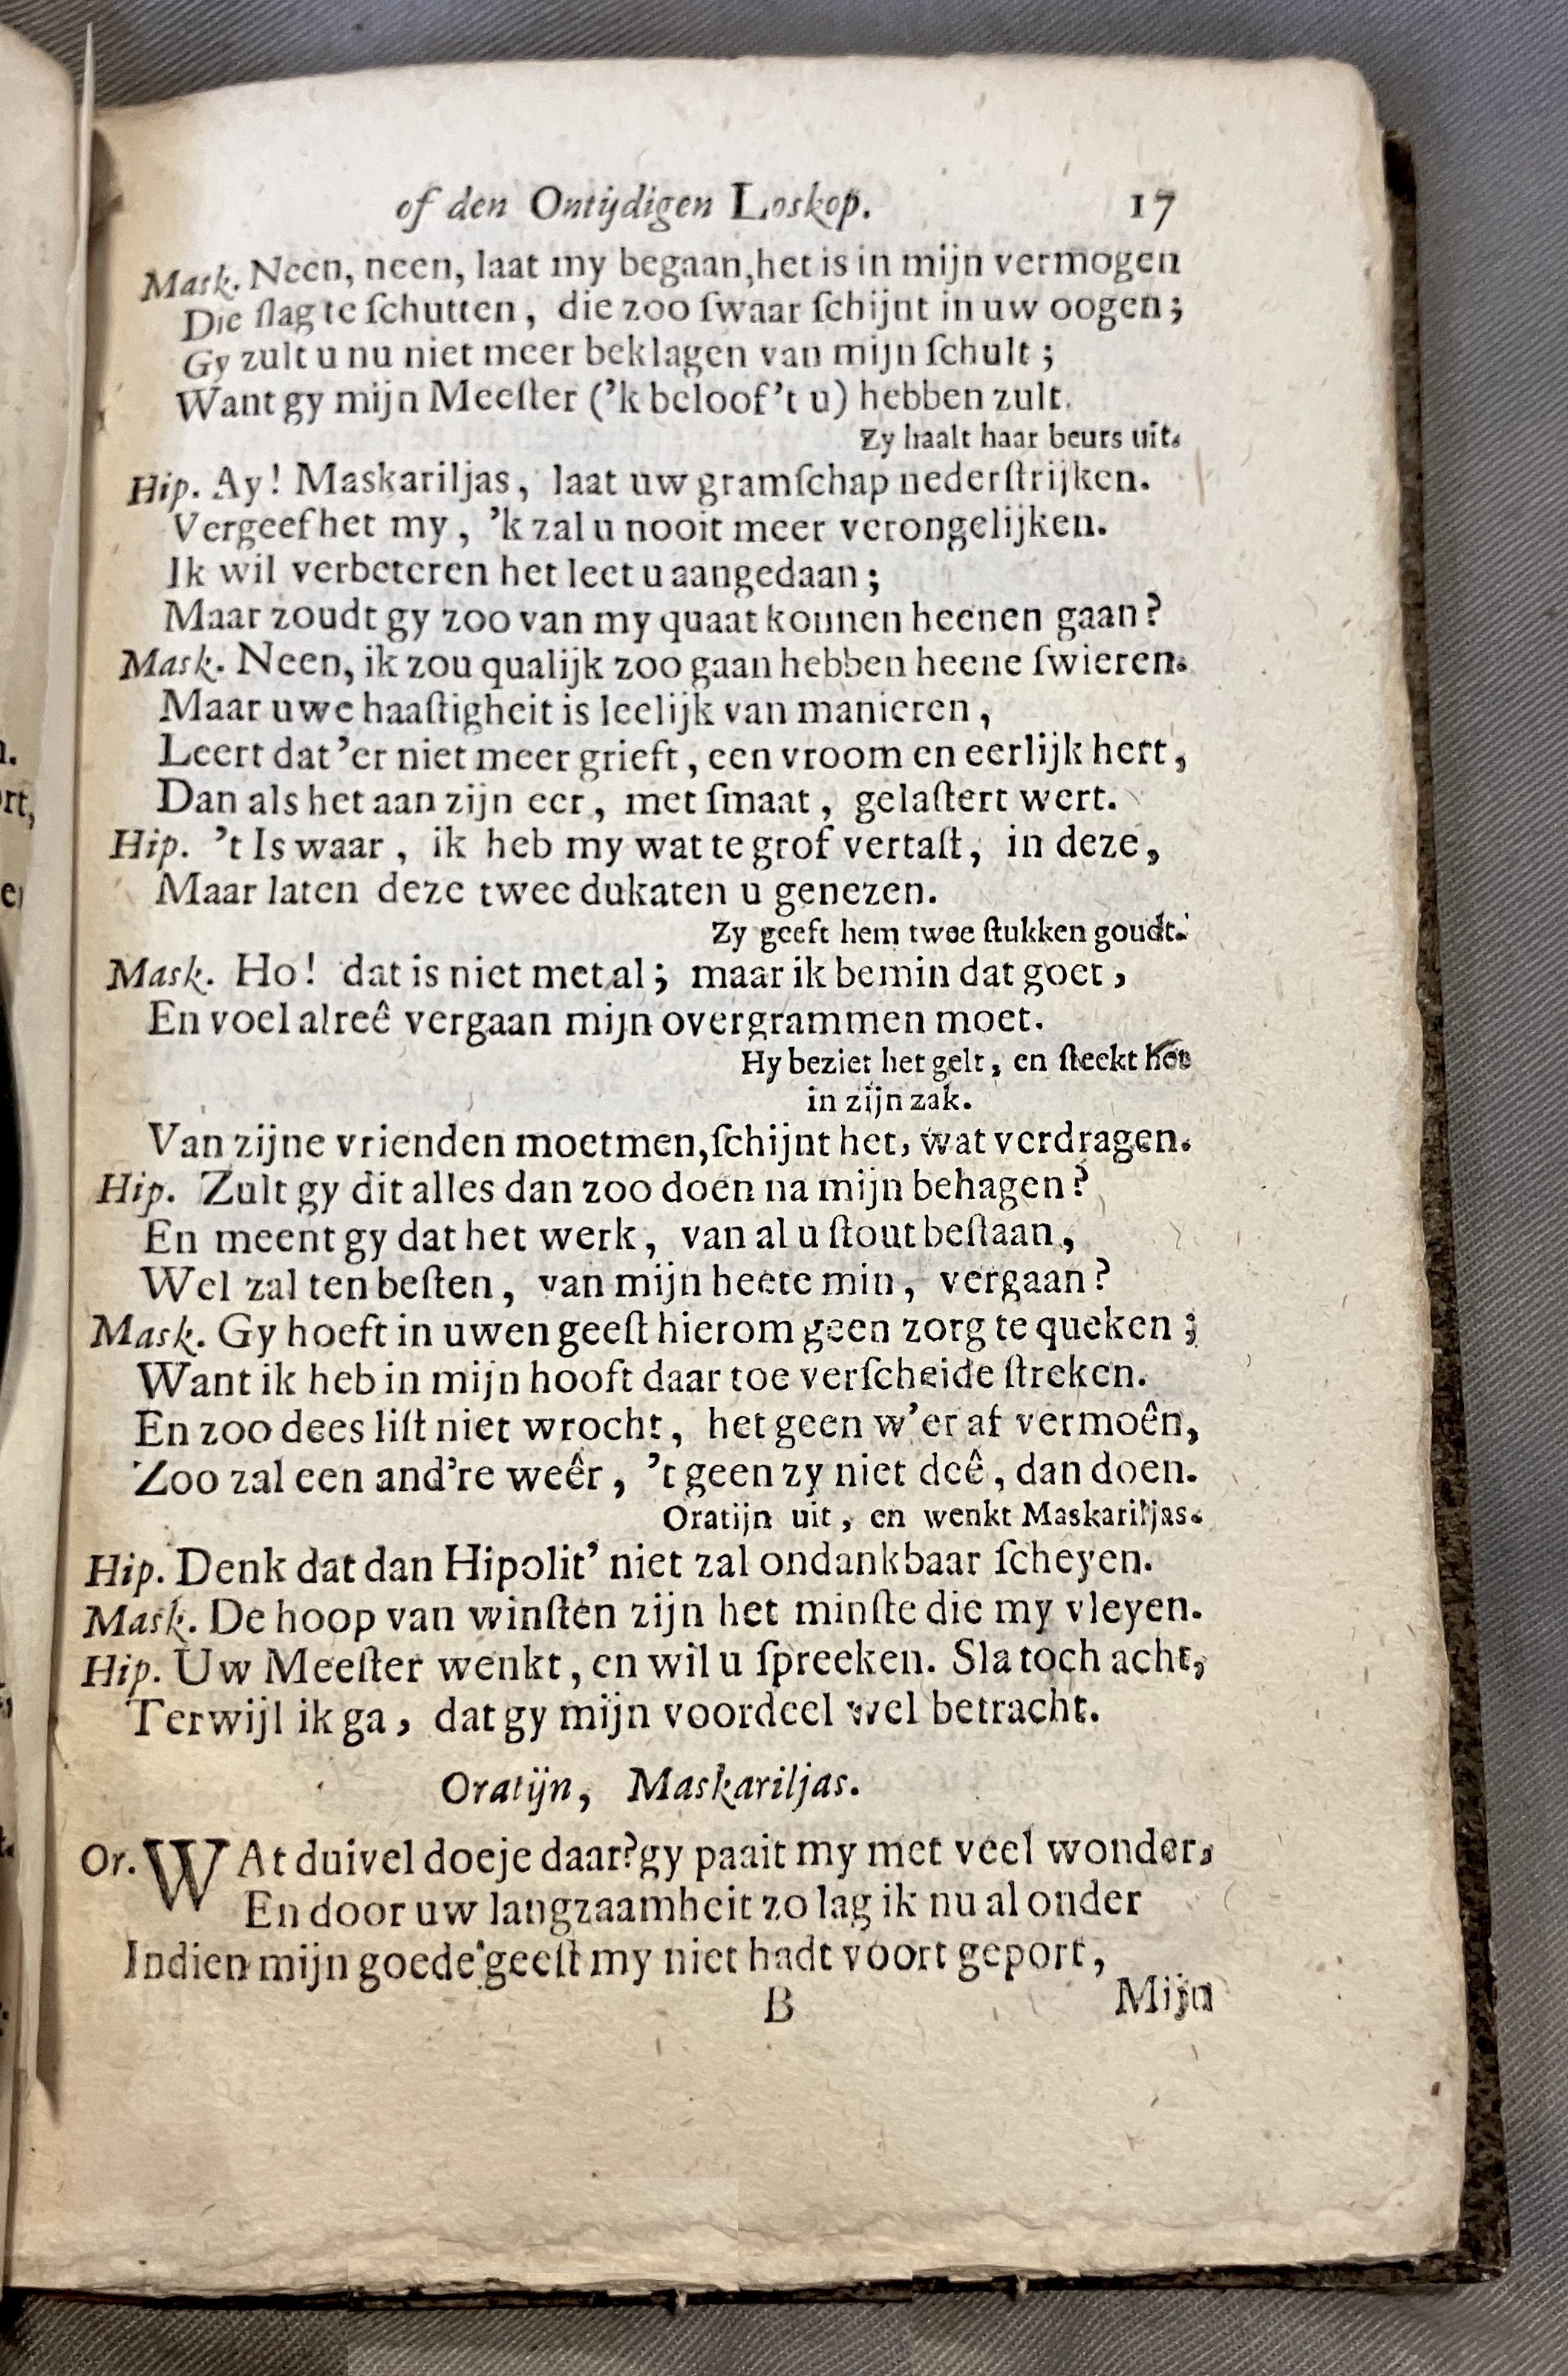 of den Ontijdigen Loskop. 17
Mask. Neen, neen, laat my begaan, het is in mijn vermogen
Die slag te ſchutten, die zoo ſwaar ſchijnt in uw oogen;
Gy zult u nu niet meer beklagen van mijn ſchult;
Want gy mijn Meeſter ('k beloof 't u) hebben zult.
Zy haalt haar beurs uit.
Hip. Ay! Maskariljas, laat uw gramſchap nederſtrijken.
Vergeef het my, 'k zal u nooit meer verongelijken.
Ik wil verbeteren het leet u aangedaan;
Maar zoudt gy zoo van my quaat konnen heenen gaan?
Mask. Neen, ik zou qualijk zoo gaan hebben heene ſwieren.
Maar uwe haaſtigheit is leelijk van manieren,
Leert dat 'er niet meer grieft, een vroom en eerlijk hert,
Dan als het aan zijn eer, met ſmaat, gelaſtert wert.
Hip. 't Is waar, ik heb my wat te grof vertaſt, in deze,
Maar laten deze twee dukaten u genezen.
Zy geeft hem twee ſtukken goudt.
Mask. Ho! dat is niet metal; maar ik bemin dat goet,
En voel alreê vergaan mijn overgrammen moet.
Hy beziet het gelt, en ſteekt het
in zijn zak.
Van zijne vrienden moetmen, ſchijnt het, wat verdragen.
Hip. Zult gy dit alles dan zoo doen na mijn behagen?
En meent gy dat het werk, van al u ſtout beſtaan,
Wel zal ten beſten, van mijn heete min, vergaan?
Mask. Gy hoeft in uwen geeſt hierom geen zorg te queken;
Want ik heb in mijn hooft daar toe verſcheide ſtreken.
En zoo dees liſt niet wrocht, het geen w'er af vermoên,
Zoo zal een and're weêr, 't geen zy niet deê, dan doen.
Oratijn uit, en wenkt Maskariljas.
Hip. Denk dat dan Hipolit' niet zal ondankbaar ſcheyen.
Mask. De hoop van winſten zijn het minſte die my vleyen.
Hip. Uw Meeſter wenkt, en wil u ſpreeken. Sla toch acht,
Terwijl ik ga, dat gy mijn voordeel wel betracht.
Oratijn, Maskariljas.
Or. WAt duivel doeje daar? gy paait my met veel wonder,
En door uw langzaamheit zo lag ik nu al onder
Indien mijn goede geeſt my niet hadt voort geport,
B Mijn